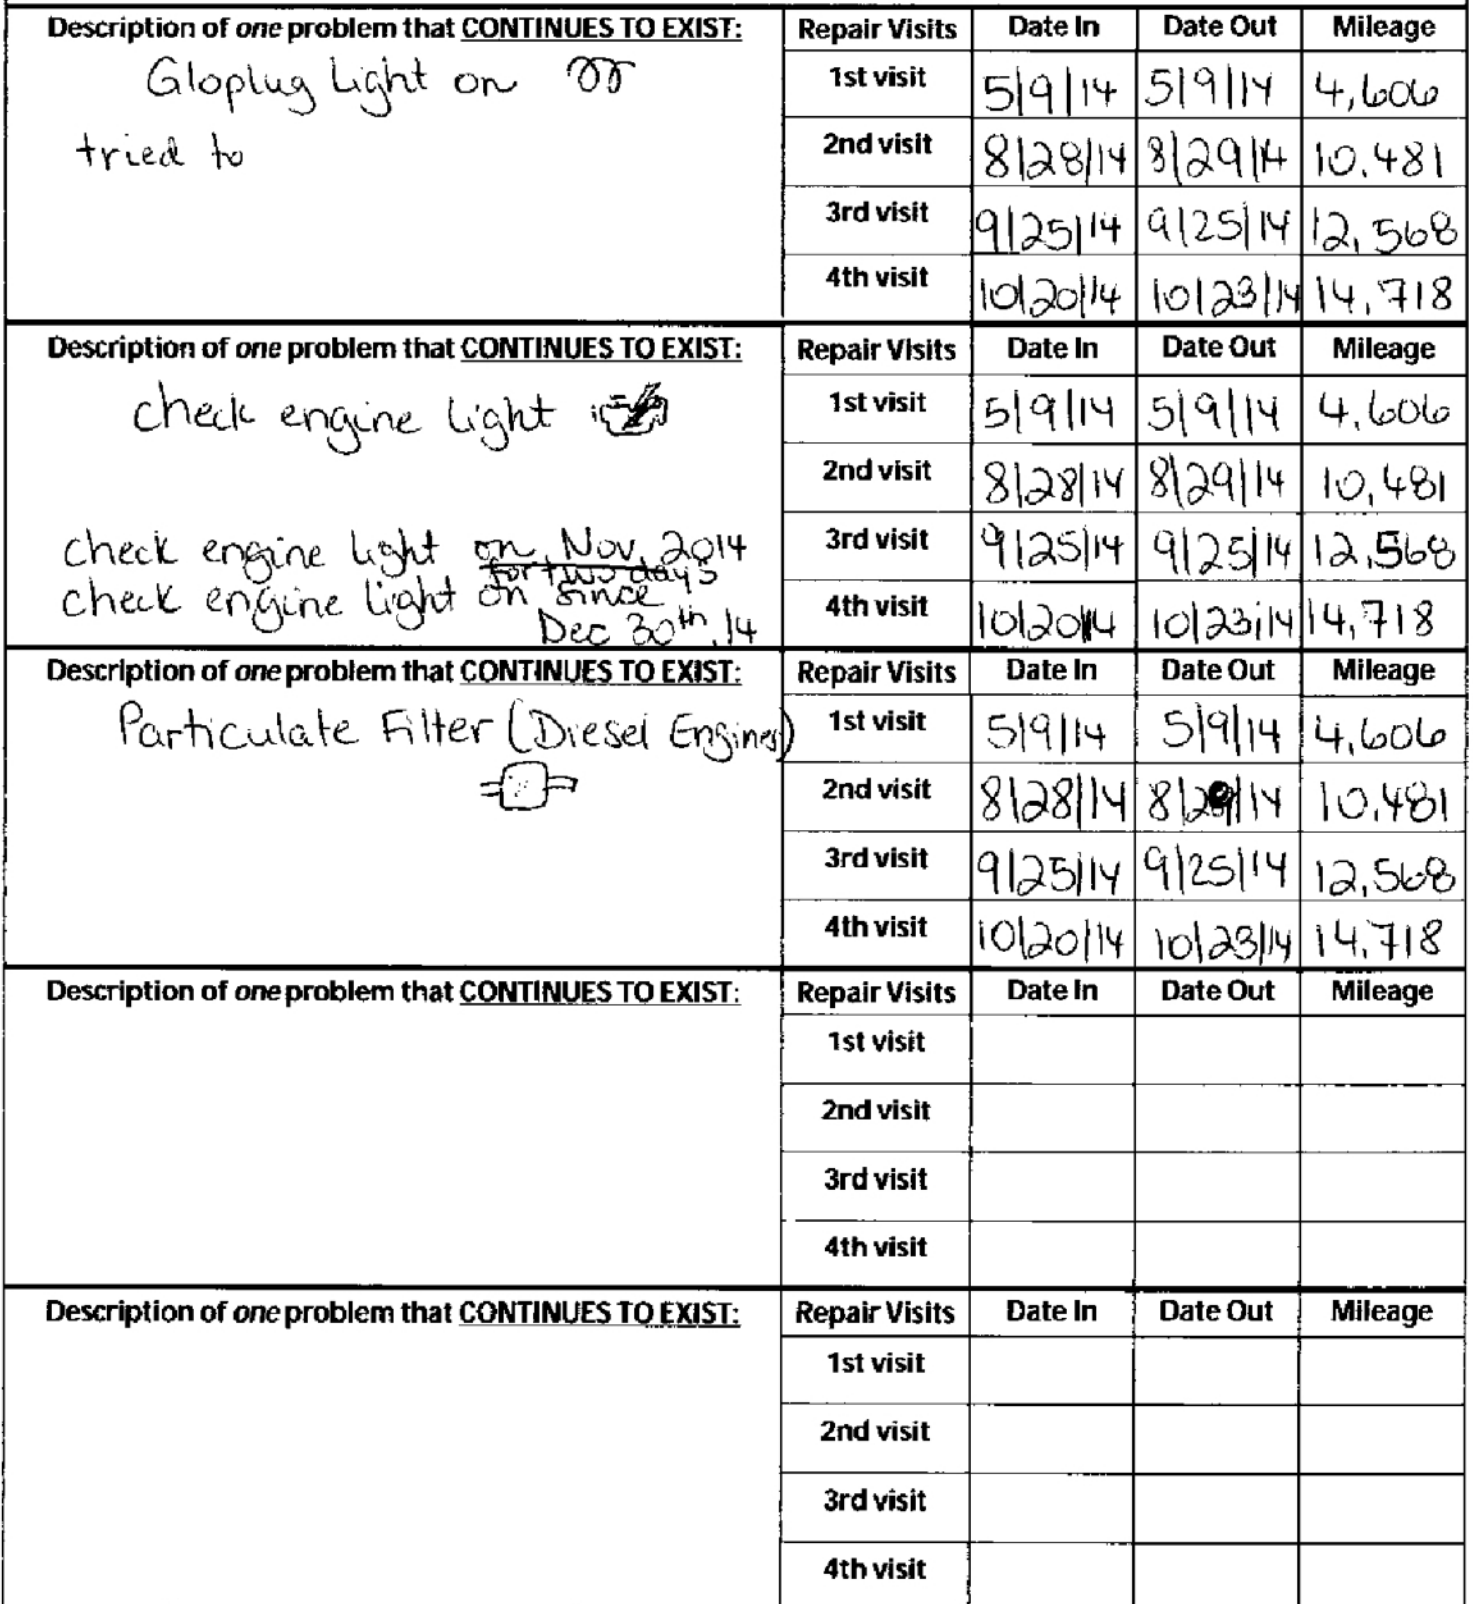 Description of one problem that CONTINUES TO EXIST: Repair Visits Date In Date Out Mileage
Gloplug Light on
tried to
1st visit 5/9/14 5/9/14 4,606
2nd visit 8/28/14 8/29/14 10,481
3rd visit 9/25/14 9/25/14 12,568
4th visit 10/20/14 10/23/14 14,718
Description of one problem that CONTINUES TO EXIST: Repair Visits Date In Date Out Mileage
check engine light
check engine light on Nov, 2014
for two days
check engine light on since
Dec 30th, 14
1st visit 5/9/14 5/9/14 4,606
2nd visit 8/28/14 8/29/14 10,481
3rd visit 9/25/14 9/25/14 12,568
4th visit 10/20/14 10/23/14 14,718
Description of one problem that CONTINUES TO EXIST: Repair Visits Date In Date Out Mileage
Particulate Filter (Diesel Engines)
1st visit 5/9/14 5/9/14 4,606
2nd visit 8/28/14 8/29/14 10,481
3rd visit 9/25/14 9/25/14 12,568
4th visit 10/20/14 10/23/14 14,718
Description of one problem that CONTINUES TO EXIST: Repair Visits Date In Date Out Mileage
1st visit
2nd visit
3rd visit
4th visit
Description of one problem that CONTINUES TO EXIST: Repair Visits Date In Date Out Mileage
1st visit
2nd visit
3rd visit
4th visit